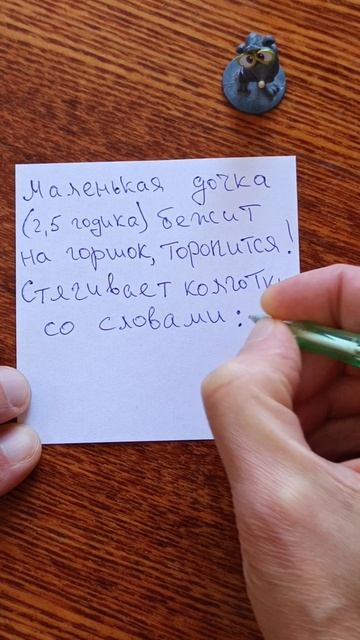 Маленькая дочка
(2,5 годика) бежит
на горшок, торопится!
Стягивает колготки
со словами: